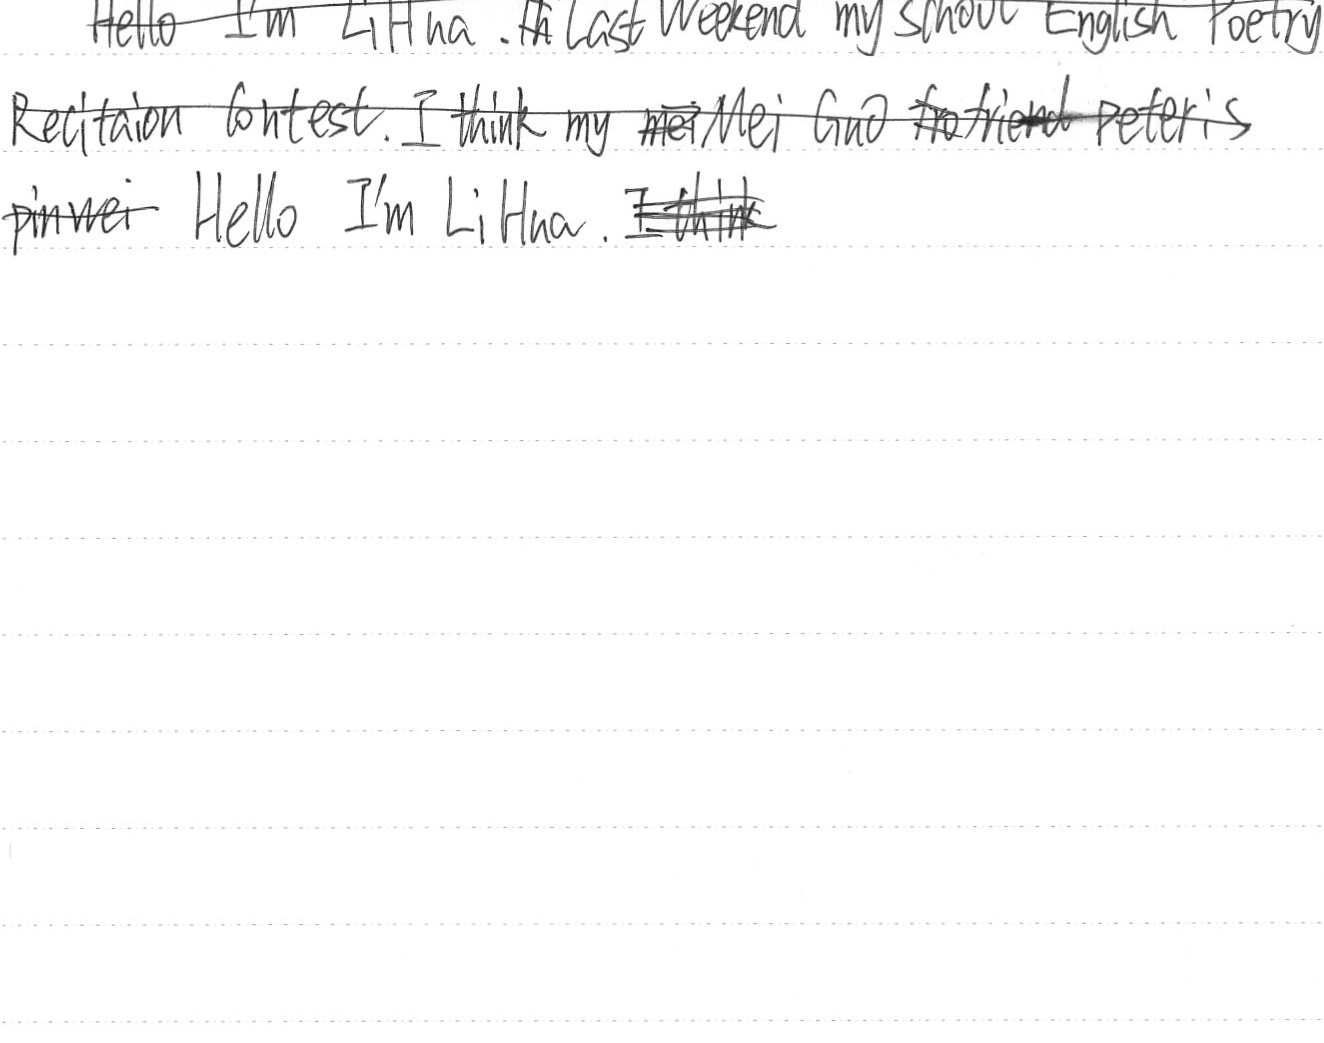 Hello I'm Li Hua . Hi Last Weekend my school English Poetry
Recitaion Contest. I think my mei Mei Guo fro friend peter is
pinwei Hello I'm Li Hua . I think